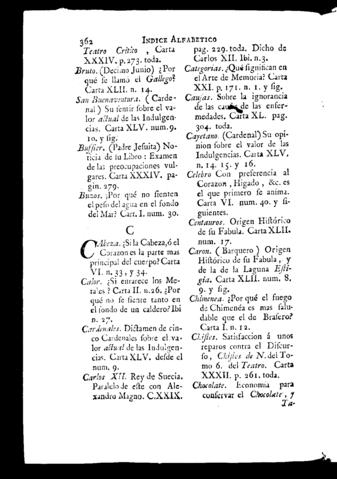 362 INDICE ALFABETICO
Teatro Critico, Carta
XXXIV. p. 273. toda.
Bruto. (Decimo Junio) ¿Por
qué se llamó el Gallego?
Carta XLII. n. 14.
San Buenaventura. (Carde-
nal) Su sentir sobre el va-
lor actual de las Indulgen-
cias. Carta XLV. num. 9.
10. y sig.
Buffier. (Padre Jesuita) No-
ticia de su Libro: Examen
de las preocupaciones vul-
gares. Carta XXXIV. pa-
gin. 279.
Buzos. ¿Por qué no sienten
el peso del agua en el fondo
del Mar? Cart. I. num. 30.
C
CAbeza. ¿Si la Cabeza, ó el
Corazon es la parte mas
principal del cuerpo? Carta
VI. n. 33, y 34.
Calor. ¿Si enrarece los Me-
tales? Carta II. n. 26. ¿Por
qué no se siente tanto en
el fondo de un caldero? Ibi
n. 27.
Cardenales. Dictamen de cin-
co Cardenales sobre el va-
lor actual de las Indulgen-
cias. Carta XLV. desde el
num. 9.
Carlos XII. Rey de Suecia.
Paralelo de este con Ale-
xandro Magno. C. XXIX.
pag. 229. toda. Dicho de
Carlos XII. Ibi. n. 3.
Categorias. ¿Qué significan en
el Arte de Memoria? Carta
XXI. p. 171. n. 1. y sig.
Causas. Sobre la ignorancia
de las causas de las enfer-
medades. Carta XL. pag.
304. toda.
Cayetano. (Cardenal) Su opi-
nion sobre el valor de las
Indulgencias. Carta XLV.
n. 14. 15. y 16.
Celebro Con preferencia al
Corazon, Higado, &c. es
el que primero se anima.
Carta VI. num. 40. y si-
guientes.
Centauros. Origen Histórico
de su Fabula. Carta XLII.
num. 17.
Caron. (Barquero) Origen
Histórico de su Fabula, y
de la de la Laguna Esti-
gia. Carta XLII. num. 8.
9. y sig.
Chimenea. ¿Por qué el fuego
de Chimenéa es mas salu-
dable que el de Brasero?
Carta I. n. 12.
Chistes. Satisfaccion á unos
reparos contra el Discur-
so, Chistes de N. del To-
mo 6. del Teatro. Carta
XXXII. p. 261. toda.
Chocolate. Economia para
conservar el Chocolate, y
Ta-